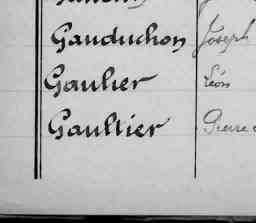 Gauduchon Joseph
Gaulier Léon
Gaultier Pierre